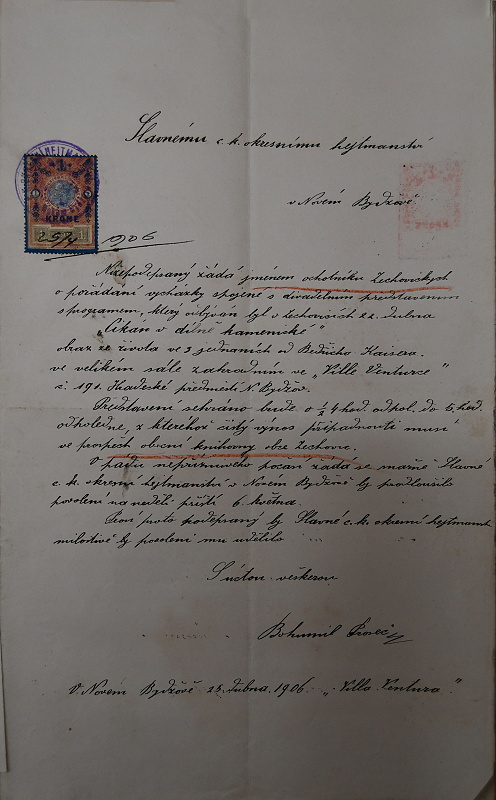 Slavnému c. k. okresnímu hejtmanství
v Novém Bydžově.
1
KRONE
25/4 1906
Nížepodepsaný žádá jménem ochotníků Zechovických
o pořádání vycházky spojené s divadelním představením
s programem, který odbýván byl v Zechovicích 22. dubna
„Cikán v dílně kamenické"
obraz ze života ve 3 jednáních od Bedřicha Kaisera.
ve velikém sále zahradním ve „Ville Ventuře"
č. 190. Hradecké předměstí N. Bydžov.
Představení sehráno bude o ½ 4 hod. odpol. do 6 hod.
odpoledne, z kteréhož čistý výnos připadnouti musí
ve prospěch obecní knihovny obce Zechovic.
O pádu nepříznivého počasí žádá se
c. k. okresní hejtmanství v Novém Bydžově by prodloužilo
povolení na neděli příští 6 května.
Prosí proto podepsaný by Slavné c. k. okresní hejtmanst.
milostivě by povolení mu udělilo
S úctou veškerou
Bohumil
V Novém Bydžově 25. dubna 1906. „Villa Ventura"